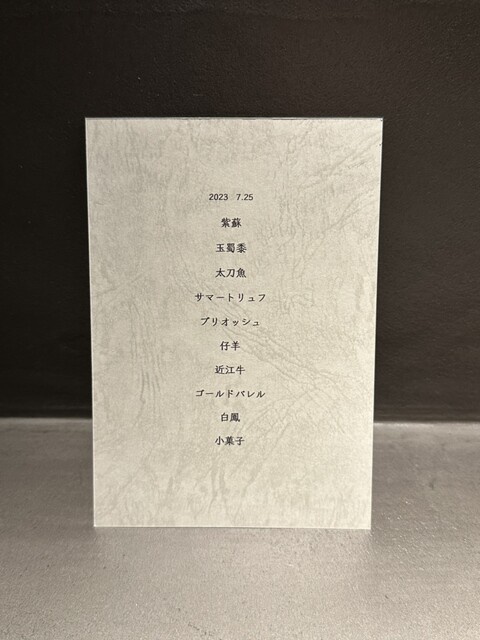 2023 7.25
紫蘇
玉蜀黍
太刀魚
サマートリュフ
ブリオッシュ
仔羊
近江牛
ゴールドバレル
白鳳
小菓子